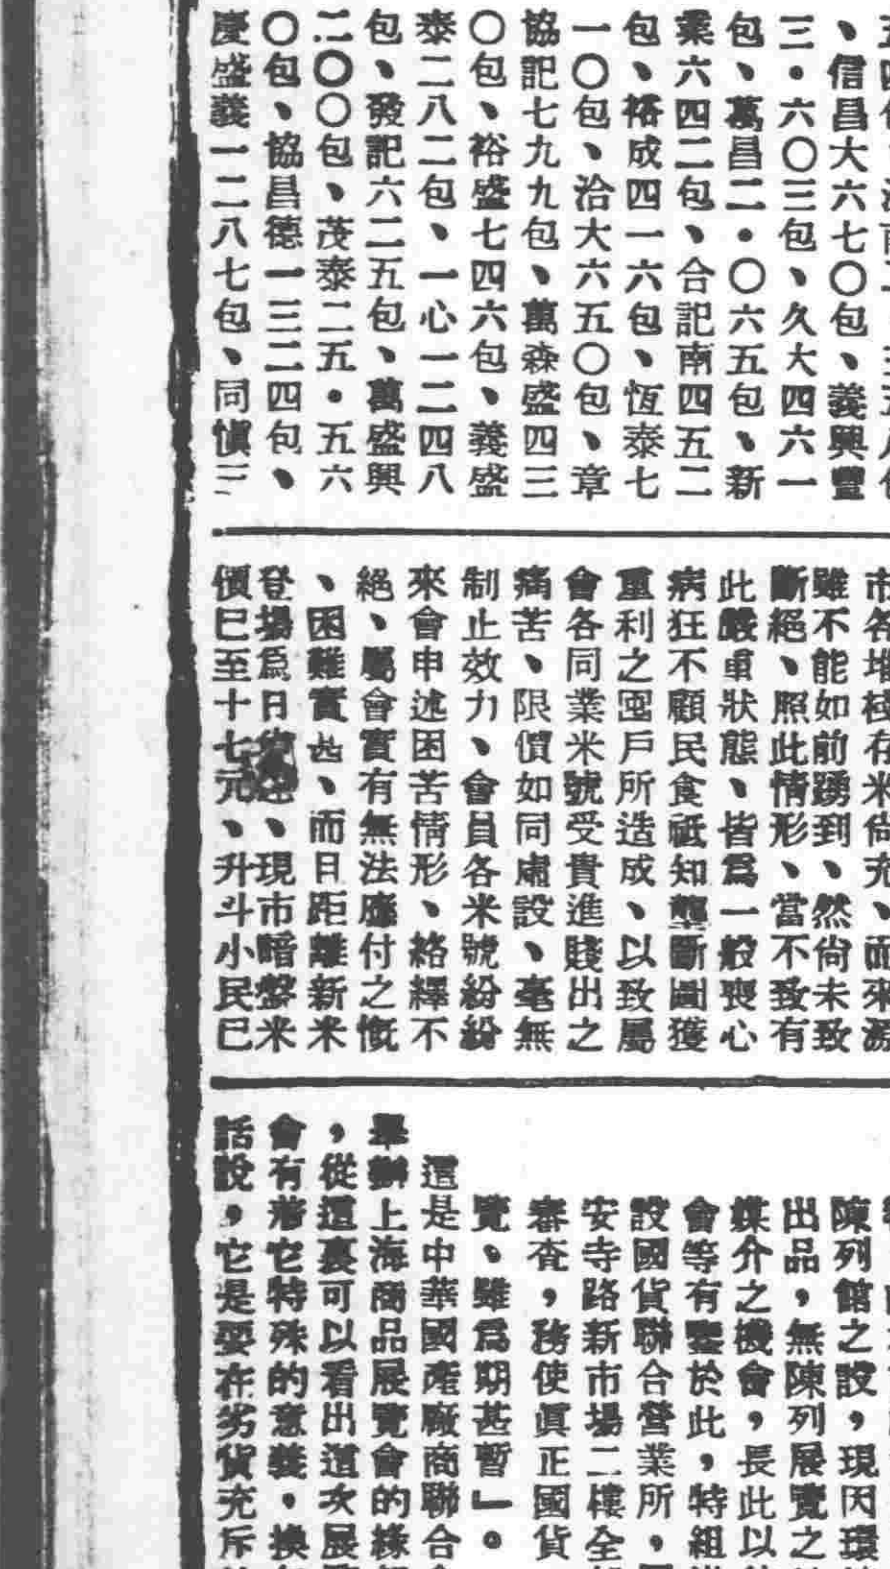 、信昌大六七〇包、義興豐
三・六〇三包、久大四六一
包、萬昌二・〇六五包、新
業六四二包、合記南四五二
包、裕成四一六包、恆泰七
一〇包、洽大六五〇包、章
協記七九九包、萬森盛四三
〇包、裕盛七四六包、義盛
泰二八二包、一心一二四八
包、發記六二五包、萬盛興
二〇〇包、茂泰二五・五六
〇包、協昌德一三二四包、
慶盛義一二八七包、同愼三
市各堆棧存米尚充、而來源
雖不能如前踴到、然尙未致
斷絕、照此情形、當不致有
此嚴重狀態、皆爲一般喪心
病狂不顧民食祗知壟斷圖獲
重利之囤戶所造成、以致屬
會各同業米號受貴進賤出之
痛苦、限價如同虛設、毫無
制止效力、會員各米號紛紛
來會申述困苦情形、絡繹不
絕、屬會實有無法應付之慨
、困難實甚、而日距離新米
登場爲日、現市暗盤米
價已至十七元、升斗小民已
陳列館之設，現因環
出品，無陳列展覽之
媒介之機會，長此以
會等有鑒於此，特組
設國貨聯合營業所，
安寺路新市場二樓全
審査，務使眞正國貨
覽、雖爲期甚暫」。
這是中華國產廠商聯合
舉辦上海商品展覽會的緣
，從這裏可以看出這次展
會有着它特殊的意義，換
話說，它是要在劣貨充斥